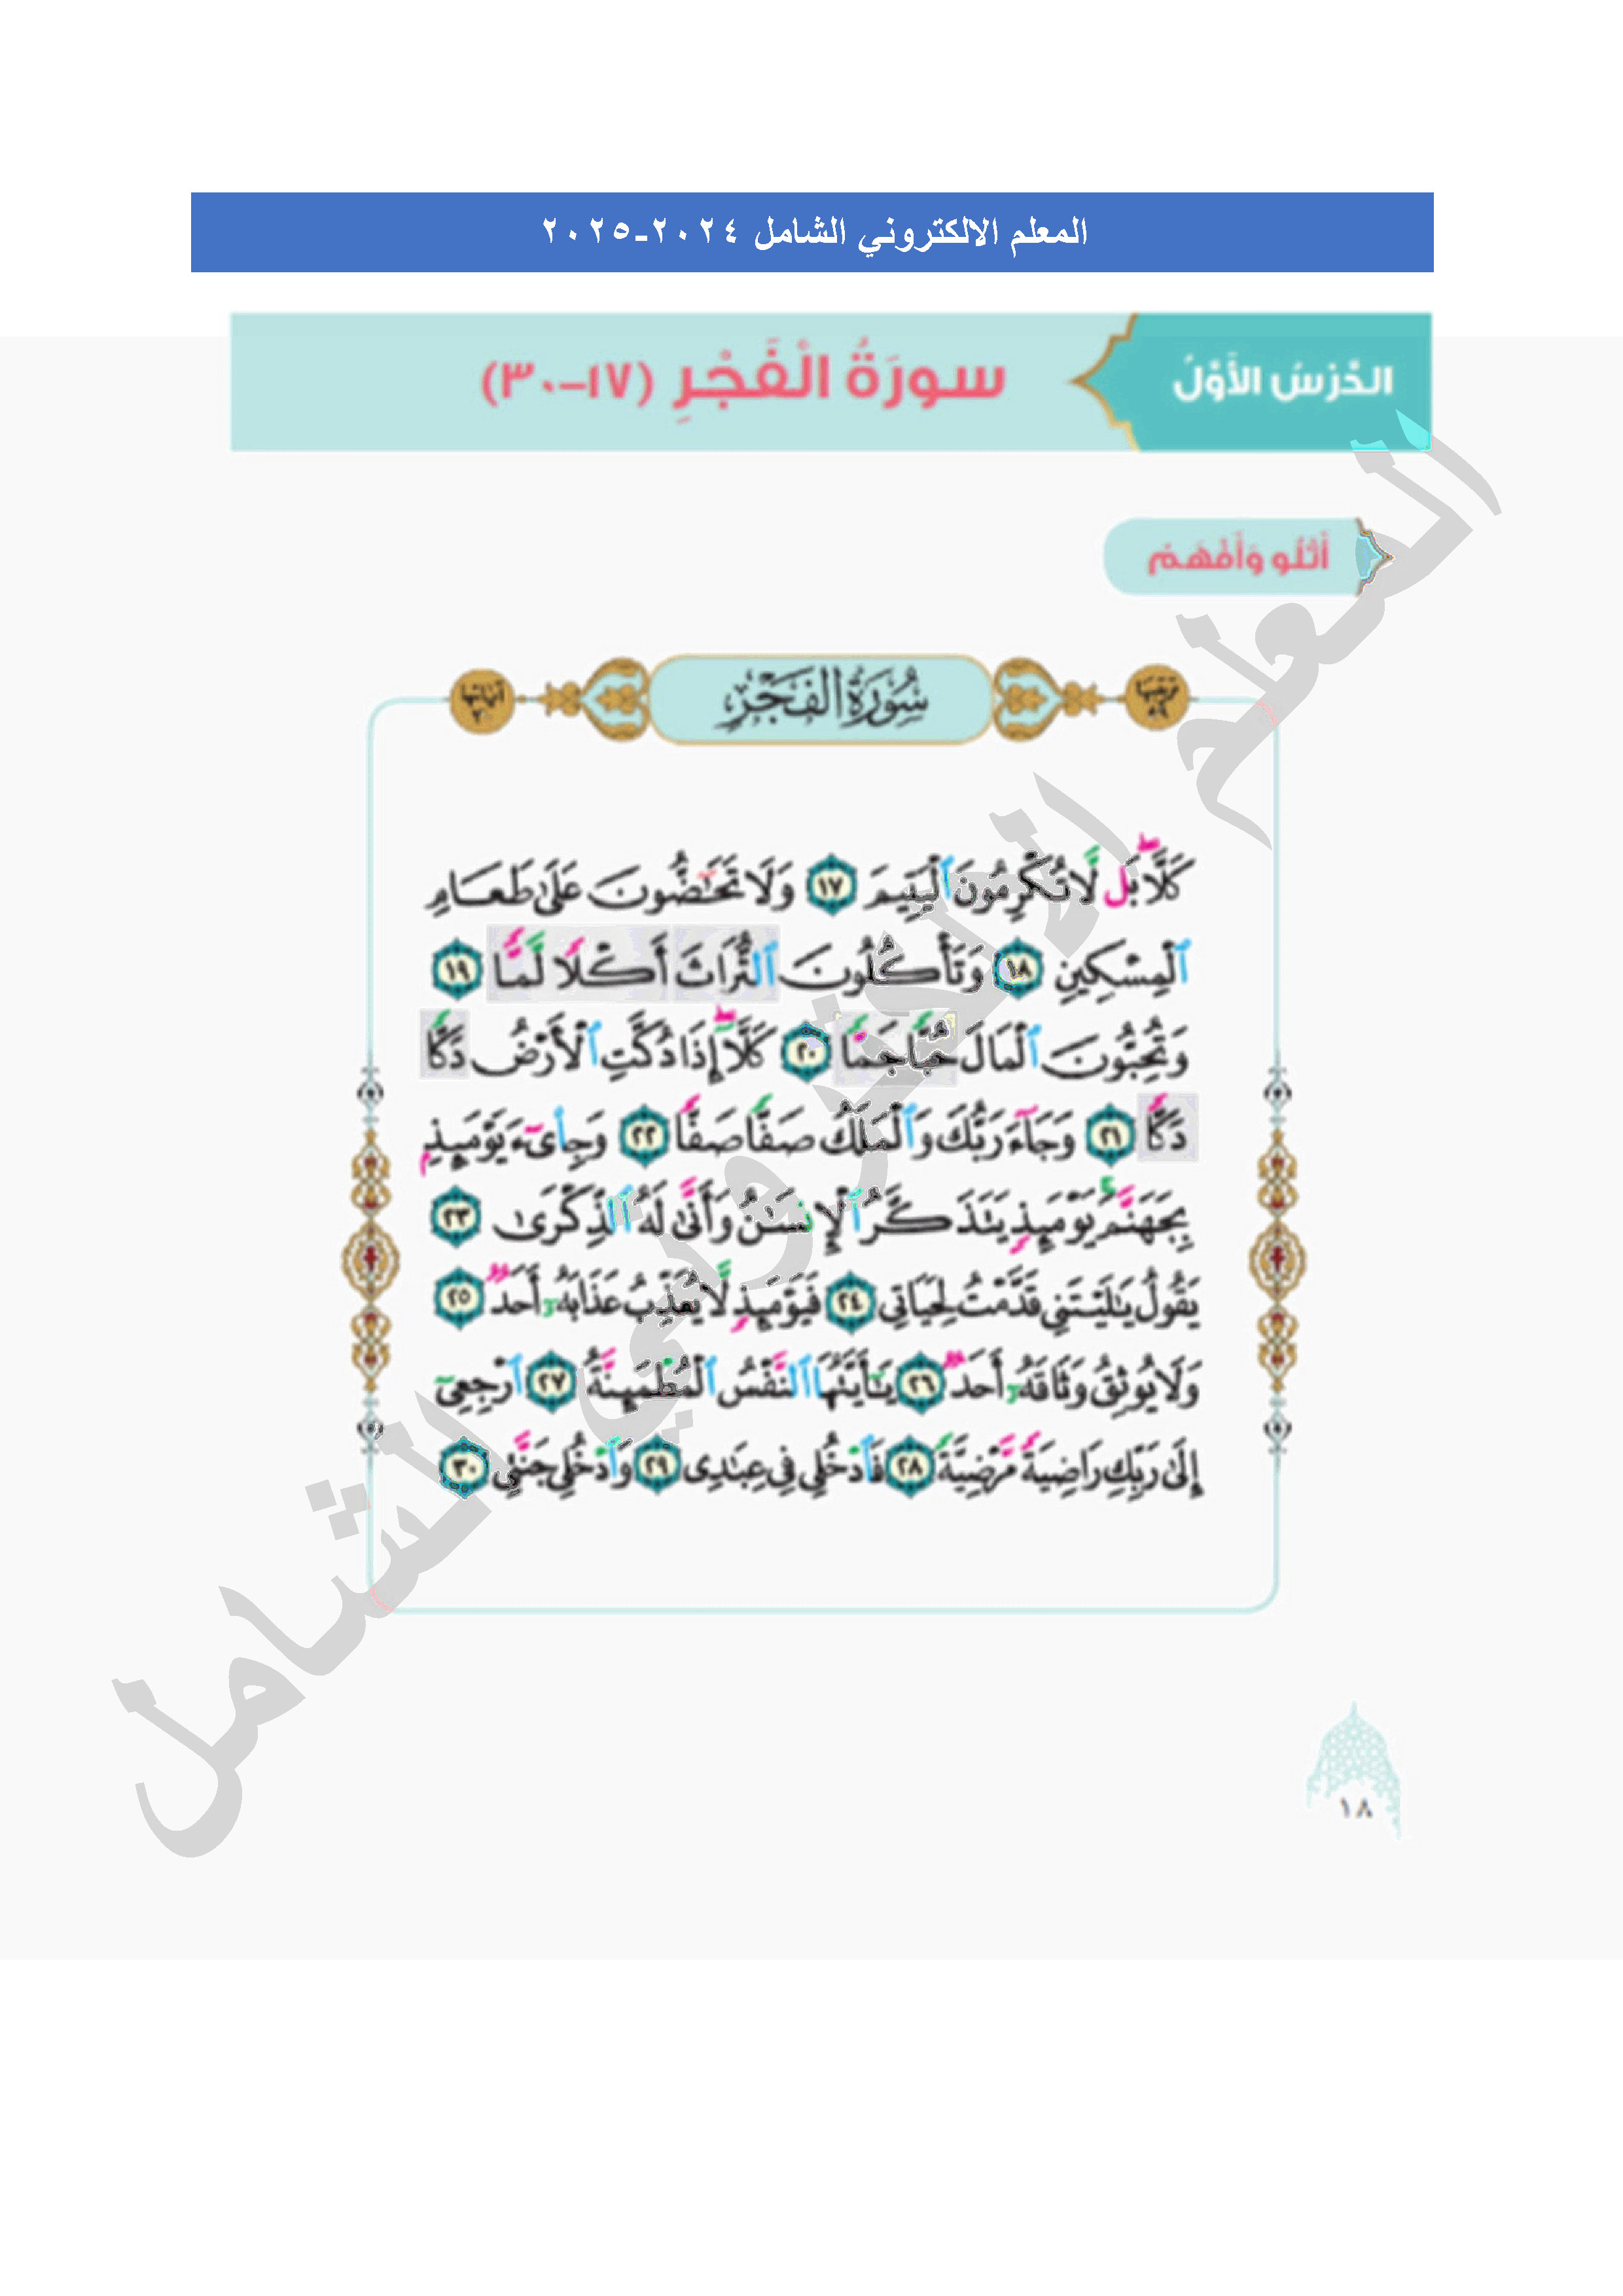 المعلم الالكتروني الشامل ٢٠٢٤-٢٠٢٥
الدَّرْسُ الأَوَّلُ
سورَةُ الْفَجْرِ (١٧-٣٠)
أَتْلُو وَأَفْهَمُ
ترتيبها ٨٩
سُورَةُ الفَجْرِ
آياتها ٣٠
كَلَّا ۖ بَل لَّا تُكْرِمُونَ ٱلْيَتِيمَ ١٧ وَلَا تَحَٰٓضُّونَ عَلَىٰ طَعَامِ
ٱلْمِسْكِينِ ١٨ وَتَأْكُلُونَ ٱلتُّرَاثَ أَكْلًا لَّمًّا ١٩
وَتُحِبُّونَ ٱلْمَالَ حُبًّا جَمًّا ٢٠ كَلَّآ ۖ إِذَا دُكَّتِ ٱلْأَرْضُ دَكًّا
دَكًّا ٢١ وَجَآءَ رَبُّكَ وَٱلْمَلَكُ صَفًّا صَفًّا ٢٢ وَجِا۟ىٓءَ يَوْمَئِذٍۭ
بِجَهَنَّمَ ۚ يَوْمَئِذٍ يَتَذَكَّرُ ٱلْإِنسَٰنُ وَأَنَّىٰ لَهُ ٱلذِّكْرَىٰ ٢٣
يَقُولُ يَٰلَيْتَنِي قَدَّمْتُ لِحَيَاتِي ٢٤ فَيَوْمَئِذٍ لَّا يُعَذِّبُ عَذَابَهُۥٓ أَحَدٌ ٢٥
وَلَا يُوثِقُ وَثَاقَهُۥٓ أَحَدٌ ٢٦ يَٰٓأَيَّتُهَا ٱلنَّفْسُ ٱلْمُطْمَئِنَّةُ ٢٧ ٱرْجِعِىٓ
إِلَىٰ رَبِّكِ رَاضِيَةً مَّرْضِيَّةً ٢٨ فَٱدْخُلِي فِي عِبَٰدِي ٢٩ وَٱدْخُلِي جَنَّتِي ٣٠
المعلم الالكتروني الشامل
١٨